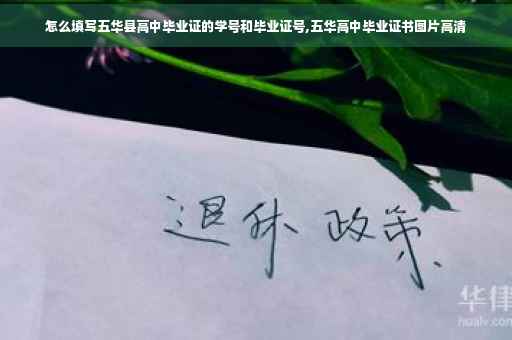 怎么填写五华县高中毕业证的学号和毕业证号,五华高中毕业证书图片高清
退休 政策
华律
hualv.com